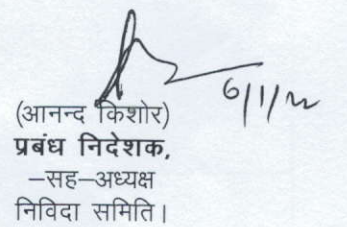 6/1/22
(आनन्द किशोर)
प्रबंध निदेशक,
–सह–अध्यक्ष
निविदा समिति।